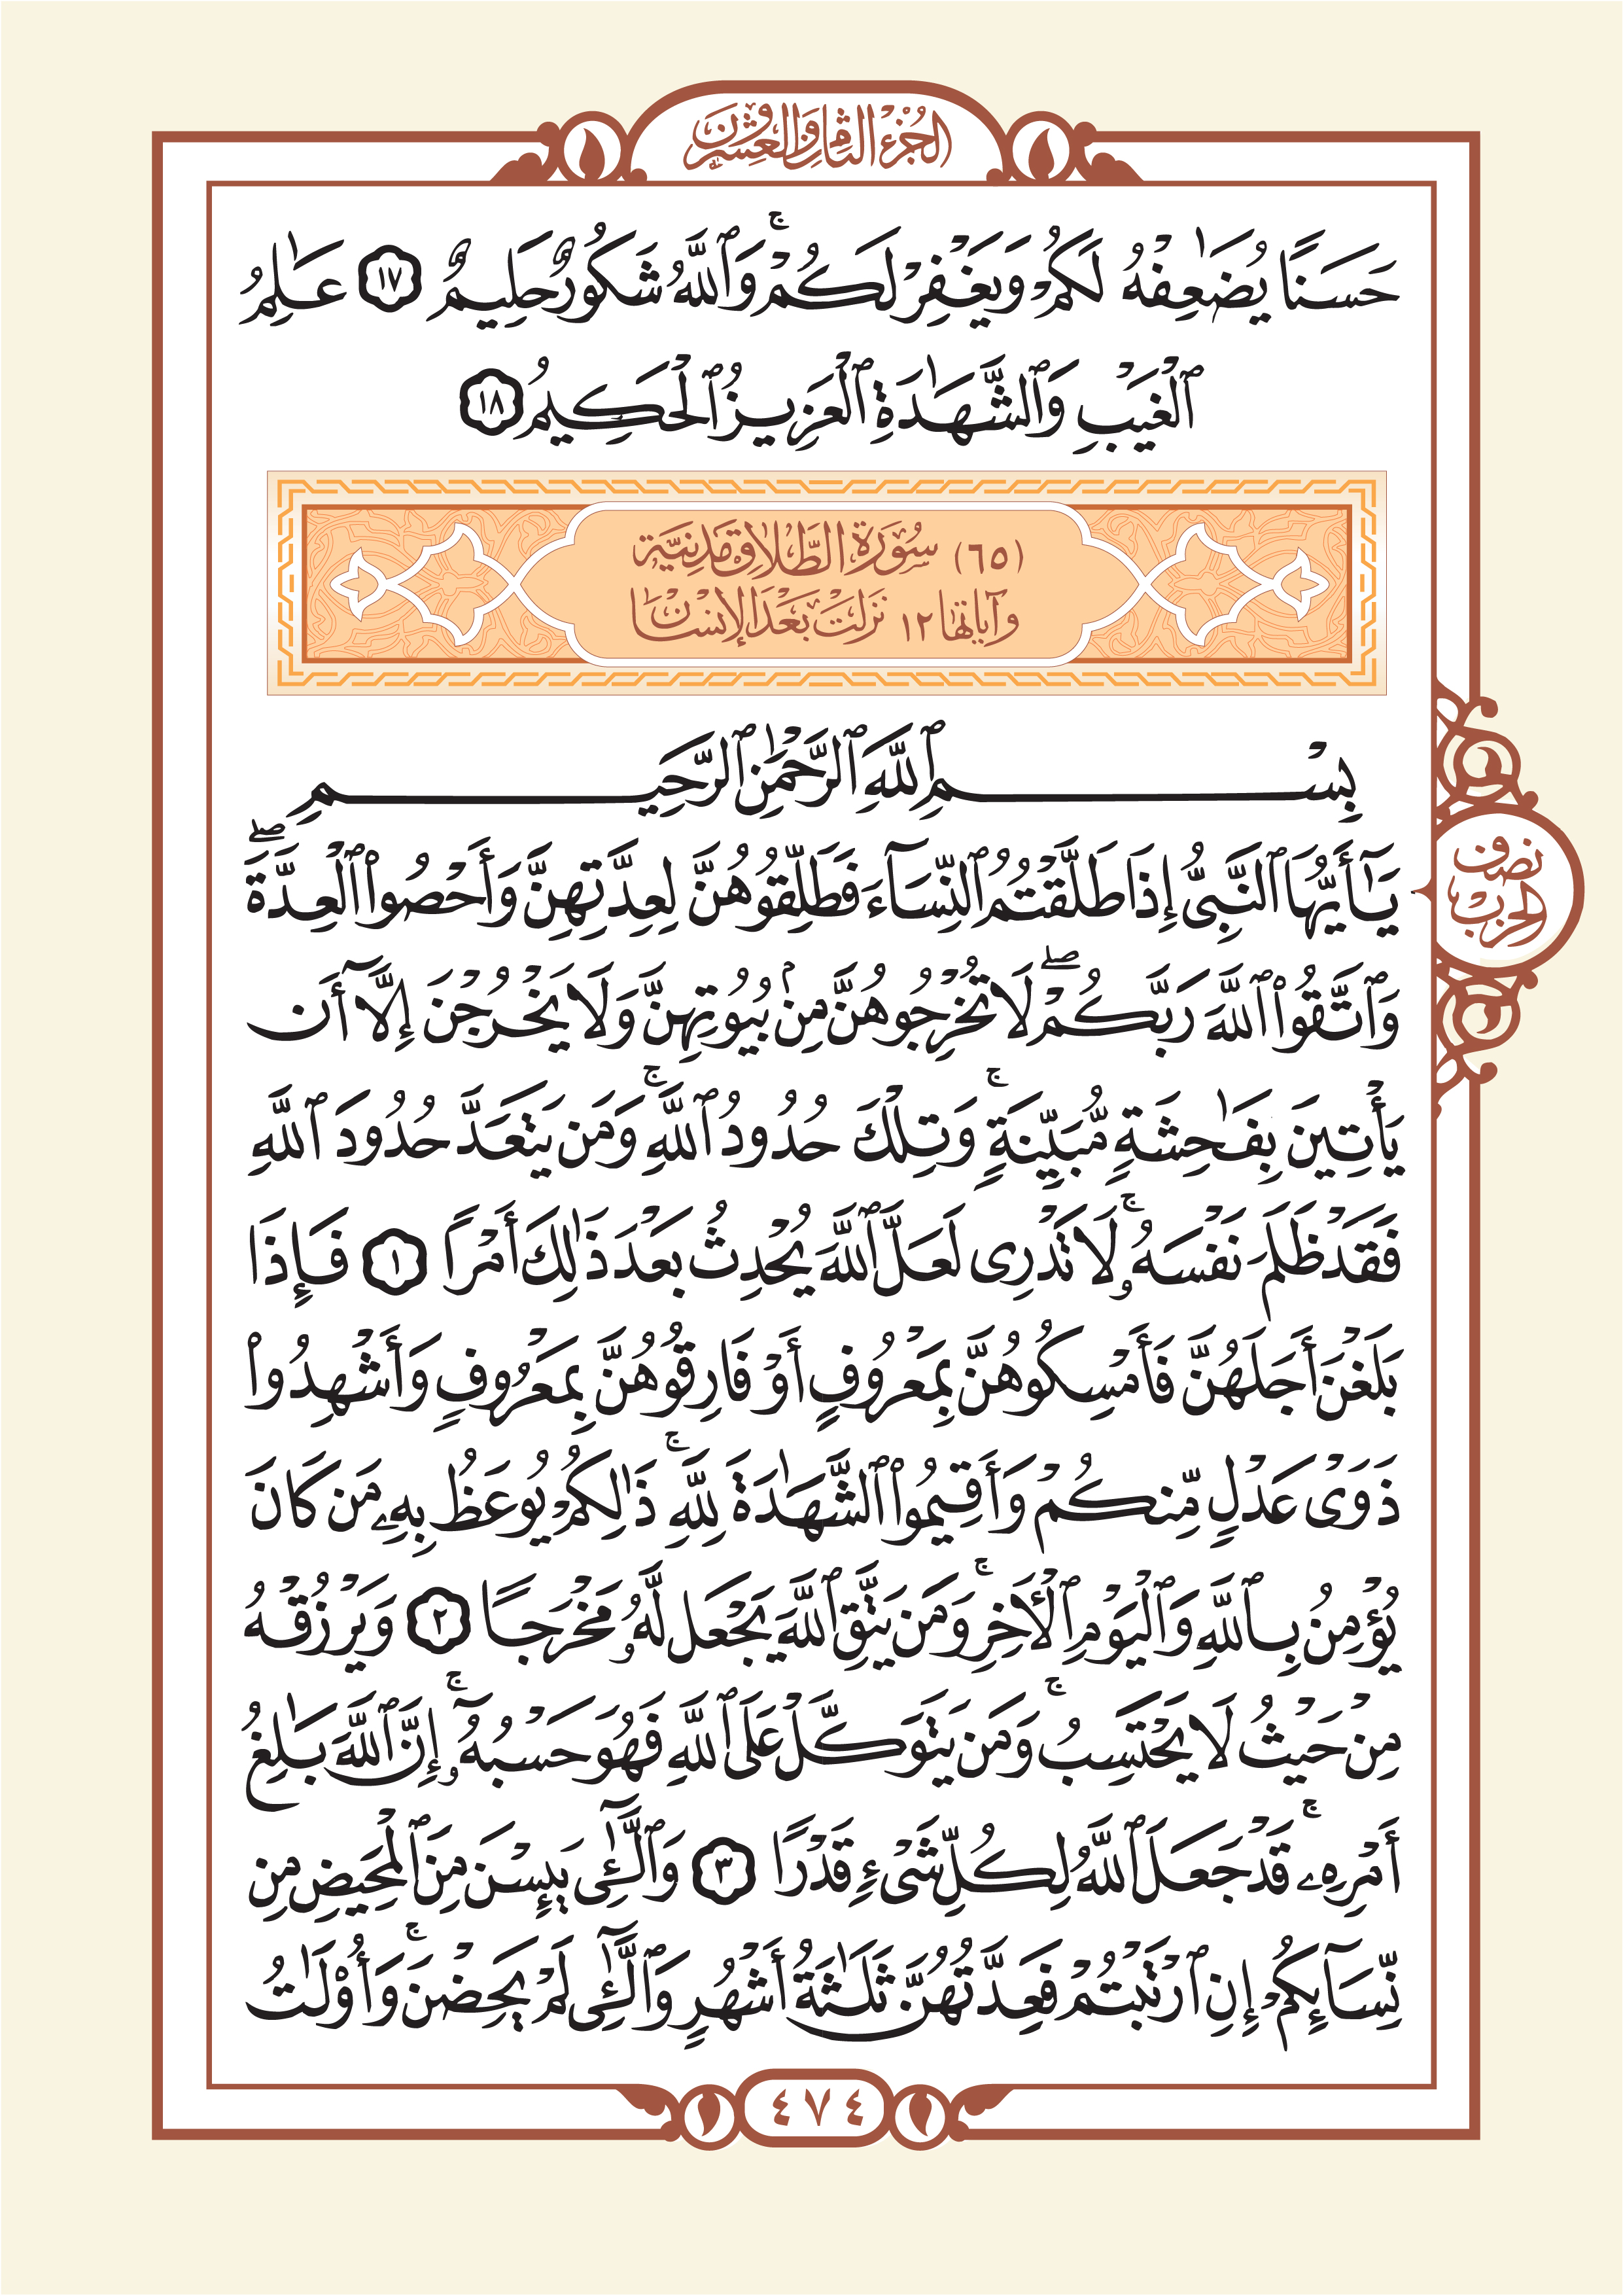 الجزء الثامن والعشرون
حَسَنًا يُضَٰعِفْهُ لَكُمْ وَيَغْفِرْ لَكُمْ ۚ وَٱللَّهُ شَكُورٌ حَلِيمٌ ١٧ عَٰلِمُ
ٱلْغَيْبِ وَٱلشَّهَٰدَةِ ٱلْعَزِيزُ ٱلْحَكِيمُ ١٨
(٦٥) سُورَةُ الطَّلَاقِ مَدَنِيَّة
وَآيَاتُهَا ١٢ نَزَلَتْ بَعْدَ الْإِنْسَٰان
بِسْمِ ٱللَّهِ ٱلرَّحْمَٰنِ ٱلرَّحِيمِ
يَٰٓأَيُّهَا ٱلنَّبِىُّ إِذَا طَلَّقْتُمُ ٱلنِّسَآءَ فَطَلِّقُوهُنَّ لِعِدَّتِهِنَّ وَأَحْصُوا۟ ٱلْعِدَّةَ ۖ
نصف
الحزب
وَٱتَّقُوا۟ ٱللَّهَ رَبَّكُمْ ۖ لَا تُخْرِجُوهُنَّ مِنۢ بُيُوتِهِنَّ وَلَا يَخْرُجْنَ إِلَّآ أَن
يَأْتِينَ بِفَٰحِشَةٍ مُّبَيِّنَةٍ ۚ وَتِلْكَ حُدُودُ ٱللَّهِ ۚ وَمَن يَتَعَدَّ حُدُودَ ٱللَّهِ
فَقَدْ ظَلَمَ نَفْسَهُۥ ۚ لَا تَدْرِى لَعَلَّ ٱللَّهَ يُحْدِثُ بَعْدَ ذَٰلِكَ أَمْرًا ١ فَإِذَا
بَلَغْنَ أَجَلَهُنَّ فَأَمْسِكُوهُنَّ بِمَعْرُوفٍ أَوْ فَارِقُوهُنَّ بِمَعْرُوفٍ وَأَشْهِدُوا۟
ذَوَىْ عَدْلٍ مِّنكُمْ وَأَقِيمُوا۟ ٱلشَّهَٰدَةَ لِلَّهِ ۚ ذَٰلِكُمْ يُوعَظُ بِهِۦ مَن كَانَ
يُؤْمِنُ بِٱللَّهِ وَٱلْيَوْمِ ٱلْءَاخِرِ ۚ وَمَن يَتَّقِ ٱللَّهَ يَجْعَل لَّهُۥ مَخْرَجًا ٢ وَيَرْزُقْهُ
مِنْ حَيْثُ لَا يَحْتَسِبُ ۚ وَمَن يَتَوَكَّلْ عَلَى ٱللَّهِ فَهُوَ حَسْبُهُۥٓ ۚ إِنَّ ٱللَّهَ بَٰلِغُ
أَمْرِهِۦ ۚ قَدْ جَعَلَ ٱللَّهُ لِكُلِّ شَىْءٍ قَدْرًا ٣ وَٱلَّٰٓـِٔى يَئِسْنَ مِنَ ٱلْمَحِيضِ مِن
نِّسَآئِكُمْ إِنِ ٱرْتَبْتُمْ فَعِدَّتُهُنَّ ثَلَٰثَةُ أَشْهُرٍ وَٱلَّٰٓـِٔى لَمْ يَحِضْنَ ۚ وَأُو۟لَٰتُ
٤٧٤